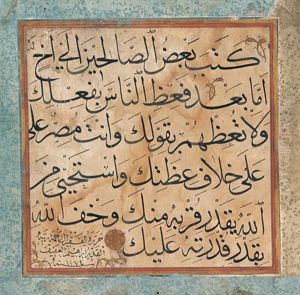 كتب بعض الصالحين الى اخ
اما بعد فعظ الناس بفعلك
ولا تعظهم بقولك وانت مصر على
على خلاف عظتك واستحيى من
الله بقدر قربه منك وخف الله
بقدر قدرته عليك